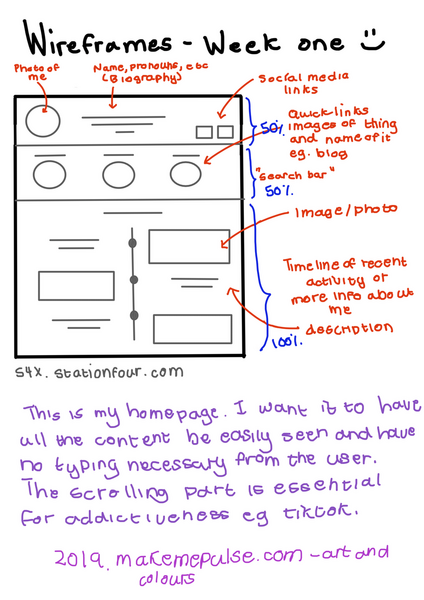 Wireframes - Week one
Photo of
me
Name, pronouns, etc
(Biography)
Social media
links
50%
Quick links
images of thing
and name of it
eg. blog
"Search bar"
50%
Image/photo
Timeline of recent
activity or
more info about
me
description
100%
S4X.stationfour.com
This is my homepage. I want it to have
all the content be easily seen and have
no typing necessary from the user.
The scrolling part is essential
for addictiveness eg tiktok.
2019.makemepulse.com - art and
colours